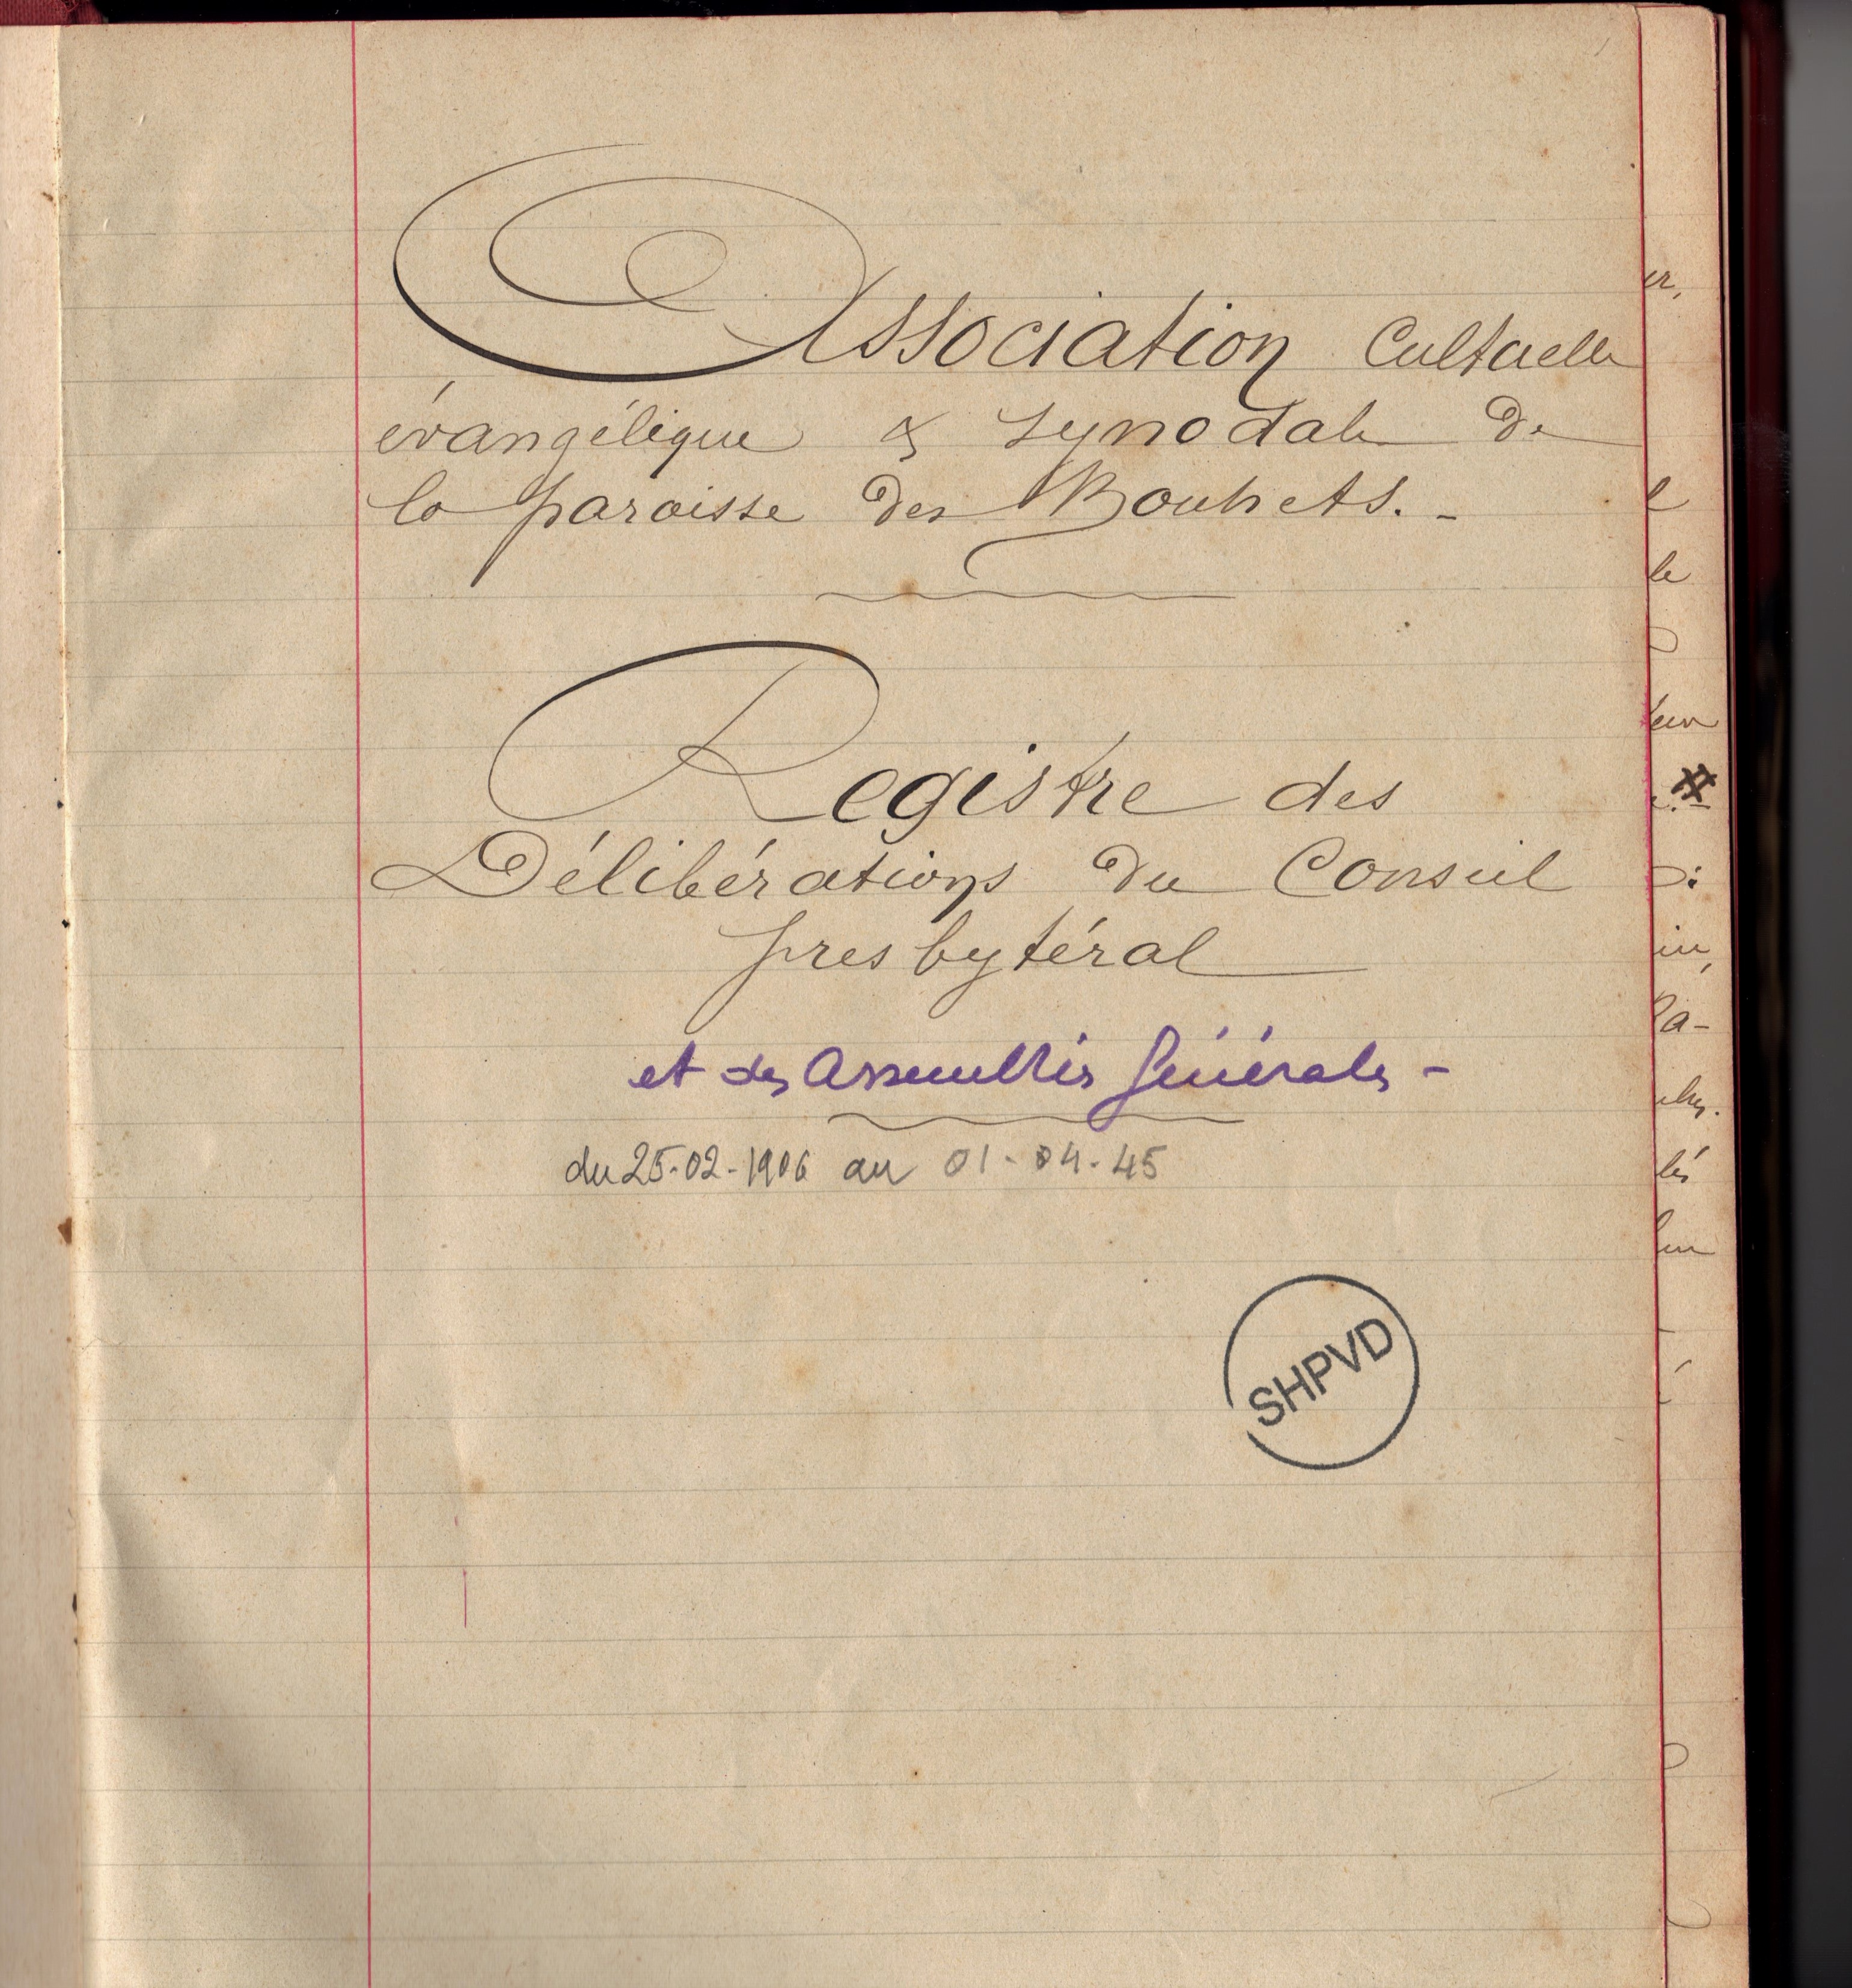 Association Cultuelle
évangélique & synodale de
la paroisse des Bouhets. -
Registre des
Délibérations du Conseil
presbytéral
et des Assemblées Générales -
du 25-02-1906 au 01-04-45
SHPVD